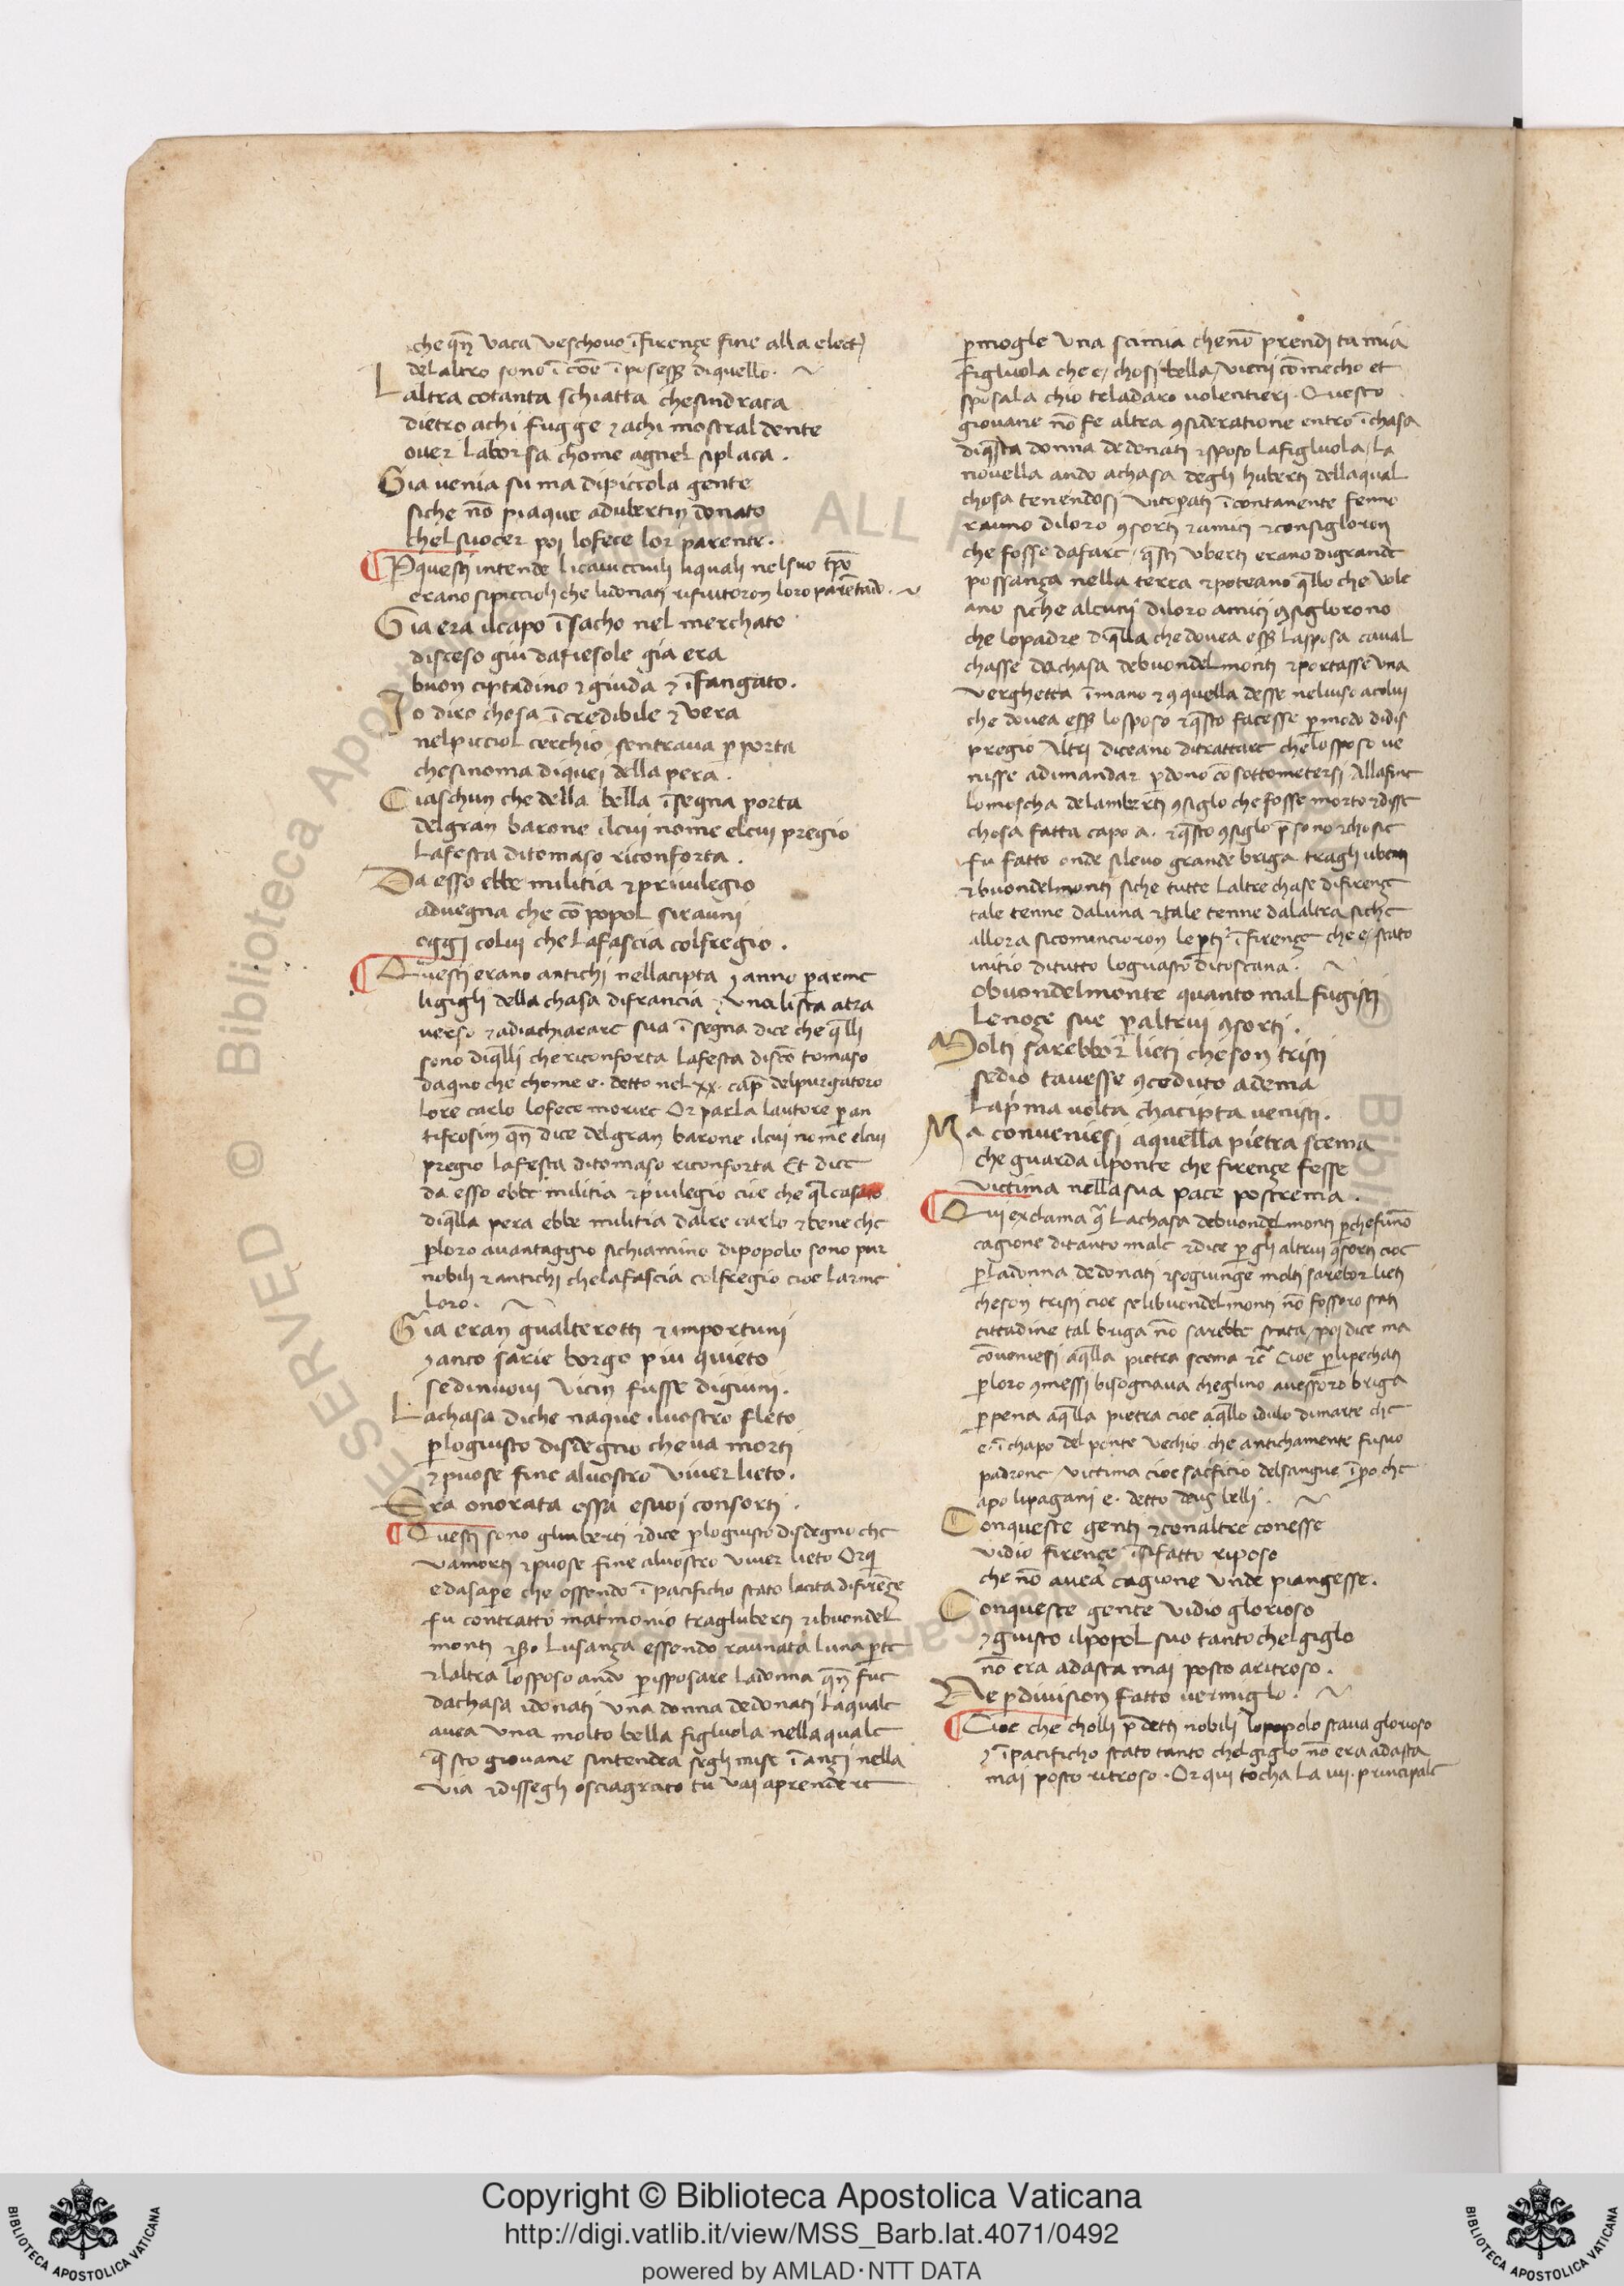 che qn̄ vaca veschouo ī firenze fine alla elect
del altro sono ī cōe ī posess diquello.
Laltra cotanta schiatta chesindraca
dietro achi fugge ⁊ achi mostral dente
ouer laborsa chome agnel siplaca.
Gia uenia su ma dipiccola gente
siche nō piaque adubertin donato
chel suocer poi lofece lor parente.
¶ P questi intende li liquali nelsuo tp̄o
erano sipiccioli che lidonati rifiutoron loro parētado.
Gia era ilcapo īsacho nel merchato
disceso giu dafiesole gia era
buon ciptadino ⁊ giuda ⁊ īfangato.
Io diro chosa īcredibile ⁊ vera
nelpicciol cerchio sentraua p porta
chesinoma diquei della pera.
Ciaschun che della bella īsegna porta
delgran barone ilcui nome elcui pregio
lafesta ditomaso riconforta.
Da esso ebbe militia ⁊ priuilegio
aduegna che cō popol sirauni
oggi colui che lafascia colfregio.
¶ Questi erano antichi nellacipta ⁊ anno parme
ligigli della chasa difrancia ⁊ una lista atra
uerso ⁊ adiachiarare sua īsegna dice che q̄lli
sono diq̄lli chericonforta lafesta discō tomaso
daqno che chome e. detto nel xx. cap̄ delpurgatoro
lore carlo lofece morire Or parla lautore p an
tifrosim qn̄ dice delgran barone ilcui nome elcui
pregio lafesta ditomaso riconforta Et dice
da esso ebbe militia ⁊ priuilegio cioe che q̄l casato
diq̄lla pera ebbe militia dalre carlo ⁊ bene che
ploro auantaggio sichiamino dipopolo sono pur
nobili ⁊ antichi chelafascia colfregio cioe larme
loro.
Gia eran gualterotti ⁊ importuni
⁊ anco sarie borgo piu quieto
sedinuoui vicin fusse digiuni.
Lachasa diche naque iluostro fleto
ploguisto disdegno cheua morti
⁊ puose fine aluostro viuer lieto.
Era onorata essa esuoi consorti.
¶ Questi sono gliuberti ⁊ dice ploguisto disdegno che
vamorti ⁊ puose fine aluostro viuer lieto Orq
edasape che essendo ī pacificho stato lacita difirēze
fu contratto matmonio tragluberti ⁊ ibuondel
monti ⁊ lusanza essendo raunata luna pte
⁊ laltra losposo ando p isposare ladonna qn̄ fue
dachasa idonati una donna dedonati laquale
auea una molto bella figluola nellaquale
q̄sto giouane sintendea segli mise īanzi nella
via ⁊ dissegli osciagrato tu vai aprendere
pmogle una scimia chenō prendi tu mia
figluola che e/ chosi bella/ vieni cō mecho et
sposala chio teladaro uolentieri. Questo
giouane nō fe altra 9sideratione entro ī chasa
diq̄sta donna dedonati ⁊ sposo lafigluola/ la
nouella ando achasa degli huberti dellaqual
chosa tenendosi vitopati īcontanente fenno
rauno diloro 9sorti ⁊ amici ⁊ consigloron
che fosse dafare/ q̄sti uberti erano digrande
possanza nella terra ⁊ poteano q̄llo che vole
ano siche alcuni diloro amici 9siglorono
che lopadre diq̄lla che douea ess lasposa caual
chasse dachasa debuondelmonti ⁊ portasse una
verghetta ī mano ⁊ 9 quella desse neluiso acolui
che douea ess losposo ⁊ q̄sto facesse p modo didis
pregio Altri diceano ditrattare chelosposo ve
nisse adimandar pdono cō sottometersi Allafine
lomoscha delamberti 9siglo che fosse morto ⁊ disse
chosa fatta capo a. ⁊ q̄sto 9siglo p̄sono ⁊ chosie
fu fatto onde sileuo grande briga tragli uberti
⁊ buondelmonti siche tutte laltre chase difirenze
tale tenne daluna ⁊ tale tenne dalaltra siche
allora sicomincioron le pti ī firenze che e/ stato
initio ditutto loguasto ditoscana.
Obuondelmonte quanto mal fugisti
lenoze sue paltrui 9sorti.
Molti sarebbor lieti cheson tristi
sedio tauesse 9ceduto adema
lapma uolta chacipta uenisti.
Ma conueniesi aquella pietra scema
che guarda ilponte che firenze fesse
uictima nella sua pace postrema.
¶ Qui exclama q̄ lachasa debuondelmonti pchefunō
cagione ditanto male ⁊ dice p gli altrui 9forti cioe
p ladonna dedonati ⁊ sogiunge molti sarebor lieti
cheson tristi cioe selibuondelmonti nō fossoro stati
cittadine tal briga nō sarebbe stata/ poi dice ma
cōueniesi aq̄lla pietra scema ⁊c̄ Cioe plipechati
ploro 9messi bisognaua cheglino auessoro briga
p pena aq̄lla pietra cioe aq̄llo idulo dimarte che
e. ī chapo del ponte vechio che antichamente fusuo
padrone/ victima cioe sacficio delsangue īpo che
apo lipagani e. detto deus belli.
Conqueste genti ⁊ conaltre conesse
vidio firenze īsifatto riposo
che nō auea cagione unde piangesse.
Conqueste gente vidio glorioso
⁊ guisto ilpopol suo tanto chelgiglo
nō era adasta mai posto aritroso.
Ne pdiuision fatto uermiglo.
¶ Cioe che cholli p̄detti nobili lopopolo staua glorioso
⁊ ī pacificho stato tanto chelgiglo nō era adasta
mai posto ritroso. Or qui tocha la iiii. principale
Copyright © Biblioteca Apostolica Vaticana
http://digi.vatlib.it/view/MSS_Barb.lat.4071/0492
powered by AMLAD·NTT DATA
BIBLIOTECA APOSTOLICA VATICANA
BIBLIOTECA APOSTOLICA VATICANA